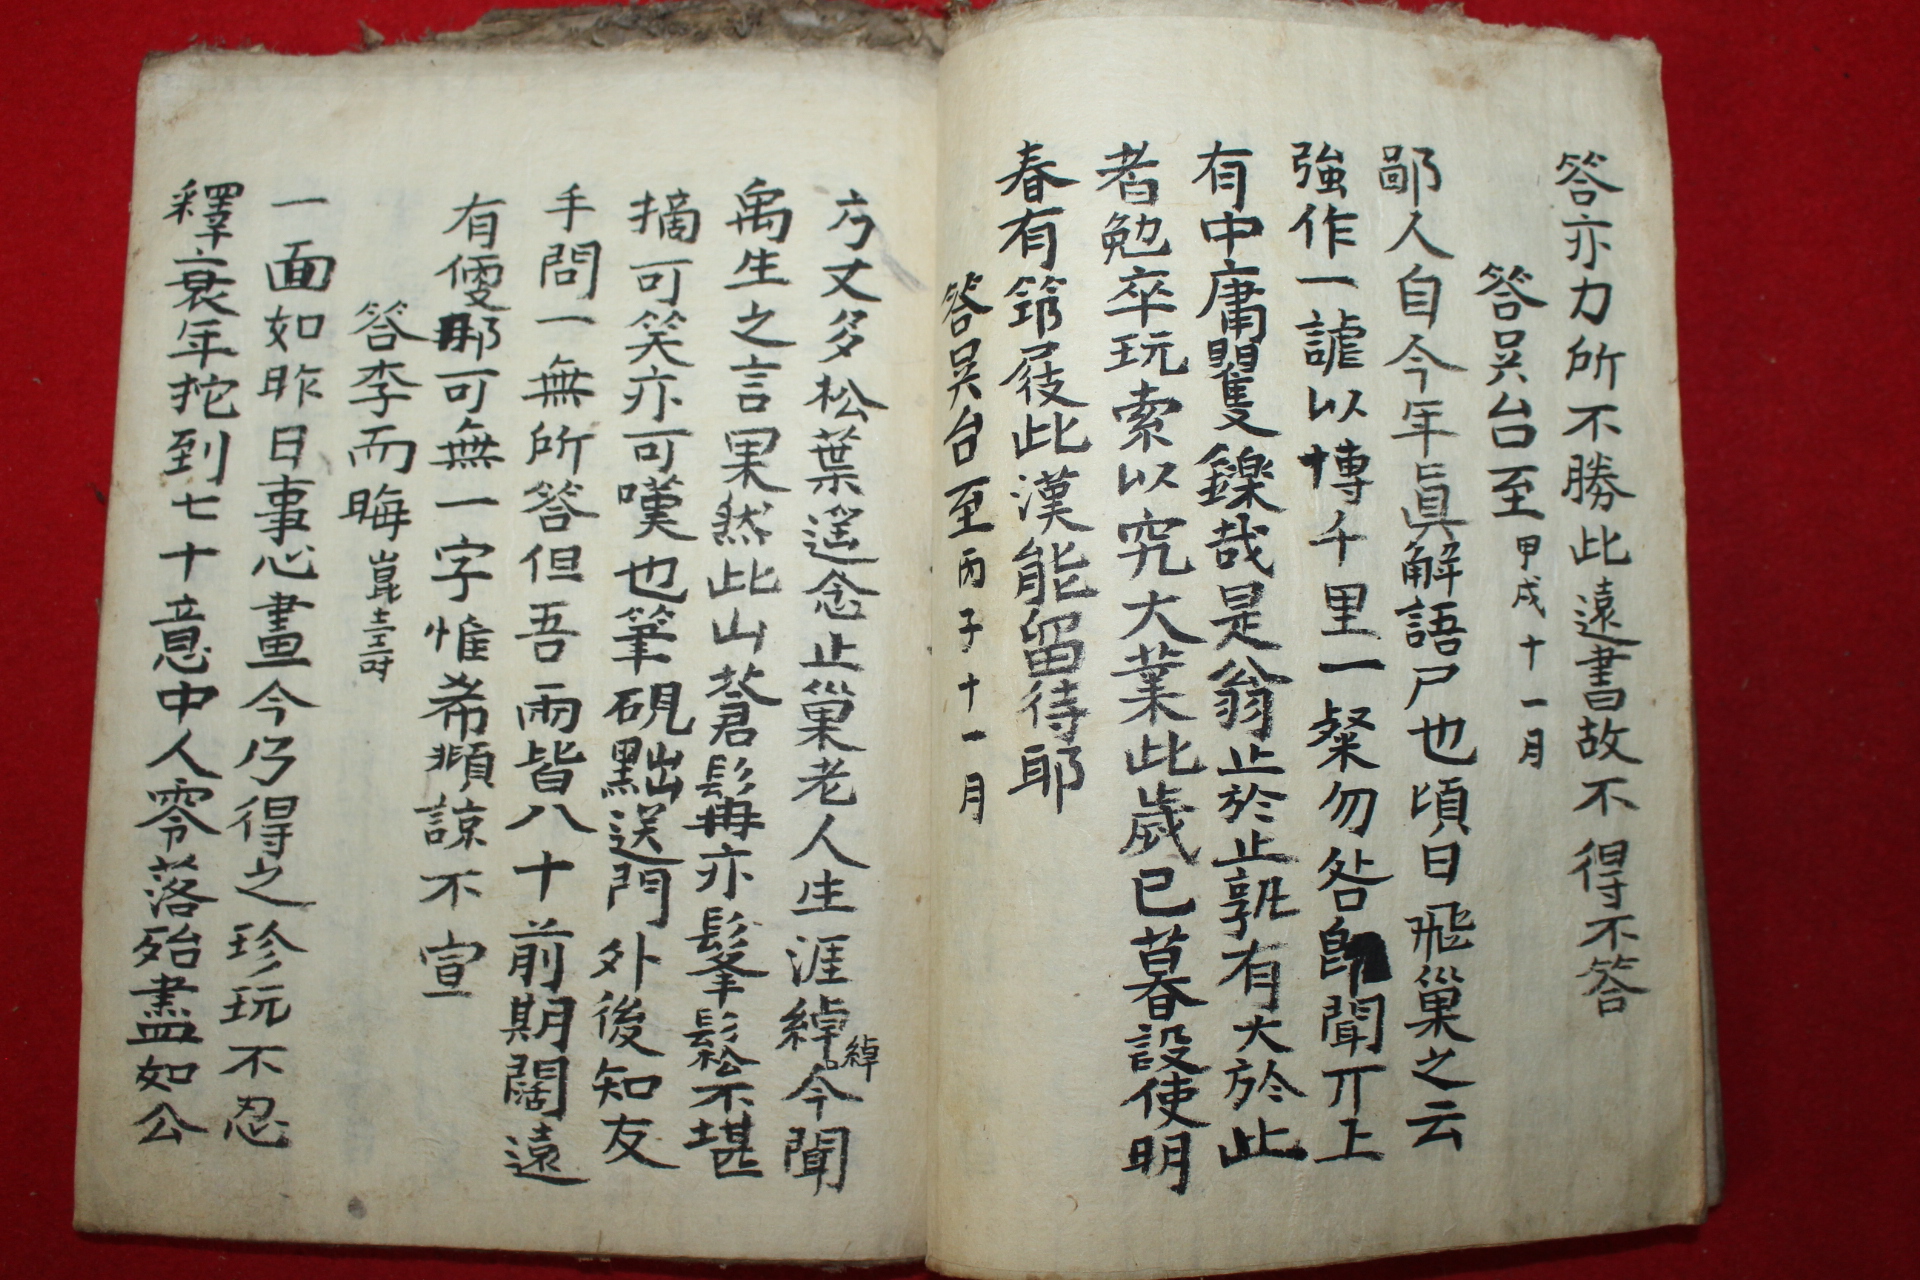 答亦力所不勝此遠書故不得不答
答吳台至 甲戌十一月
鄙人自今年眞解語尸也頃日飛巢之云
強作一謔以博千里一粲勿咎卽聞丌上
有中庸矍鑠哉是翁止於止孰有大於此
者勉卒玩索以究大業此歲已暮設使明
春有筇屐此漢能留待耶
答吳台至 丙子十一月
方丈多松葉遥念止巢老人生涯綽綽今聞
禹生之言果然此山蒼髯亦髼鬆不堪
摘可笑亦可嘆也筆硯黜送門外後知友
手問一無所答但吾兩皆八十前期闊遠
有便那可無一字惟希頫諒不宣
答李而晦
一面如昨日事心畫今乃得之珍玩不忍
釋衰年挖到七十意中人零落殆盡如公